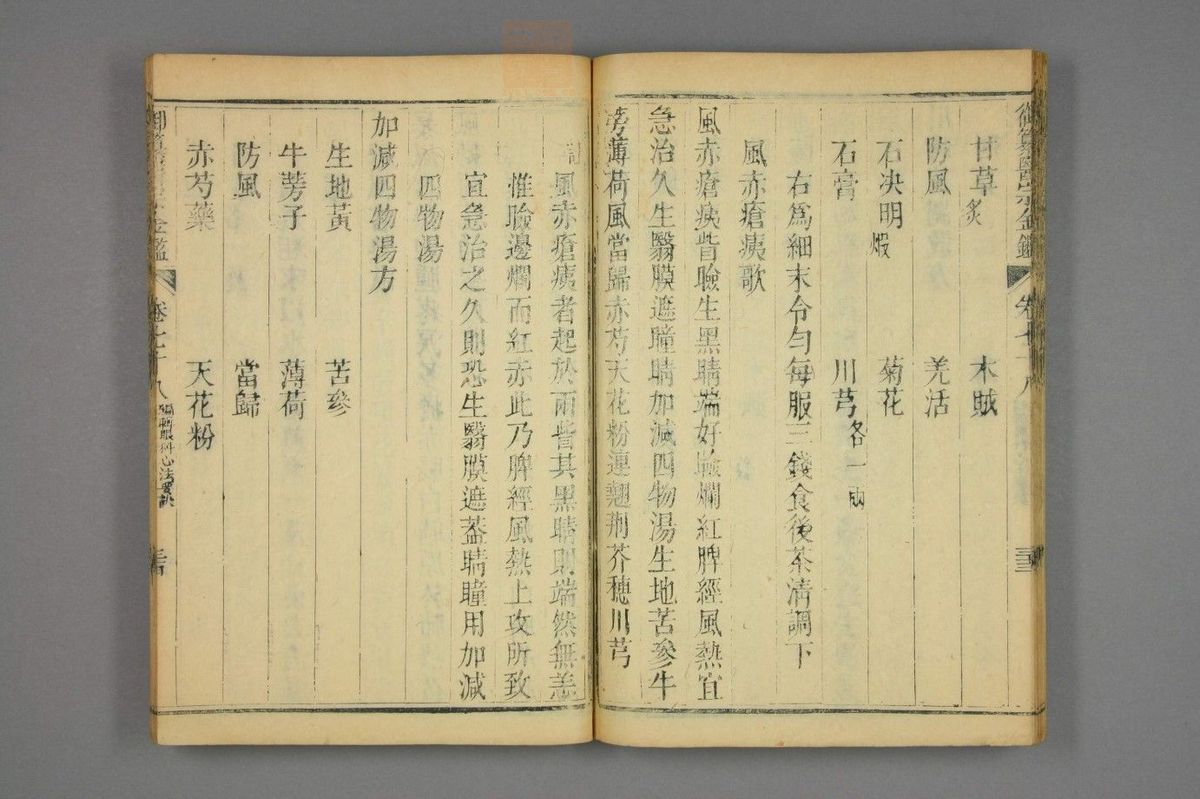 御纂醫宗金鑑 卷七十八 三三
甘草炙 木賊
防風 羌活
石决明煅 菊花
石膏 川芎各一兩
右爲細末令勻每服三錢食後茶清調下
風赤瘡痍歌
風赤瘡痍眥瞼生黑睛端好瞼爛紅脾經風熱宜
急治久生翳膜遮瞳睛加減四物湯生地苦參牛
蒡薄荷風當歸赤芍天花粉連翹荆芥穗川芎
風赤瘡痍者起於兩眥其黑睛則端然無恙
惟瞼邊爛而紅赤此乃脾經風熱上攻所致
宜急治之久則恐生翳膜遮蓋睛瞳用加減
四物湯
加減四物湯方
生地黃 苦參
牛蒡子 薄荷
防風 當歸
赤芍藥 天花粉
金鑑 卷七十八 編輯眼科心法要訣